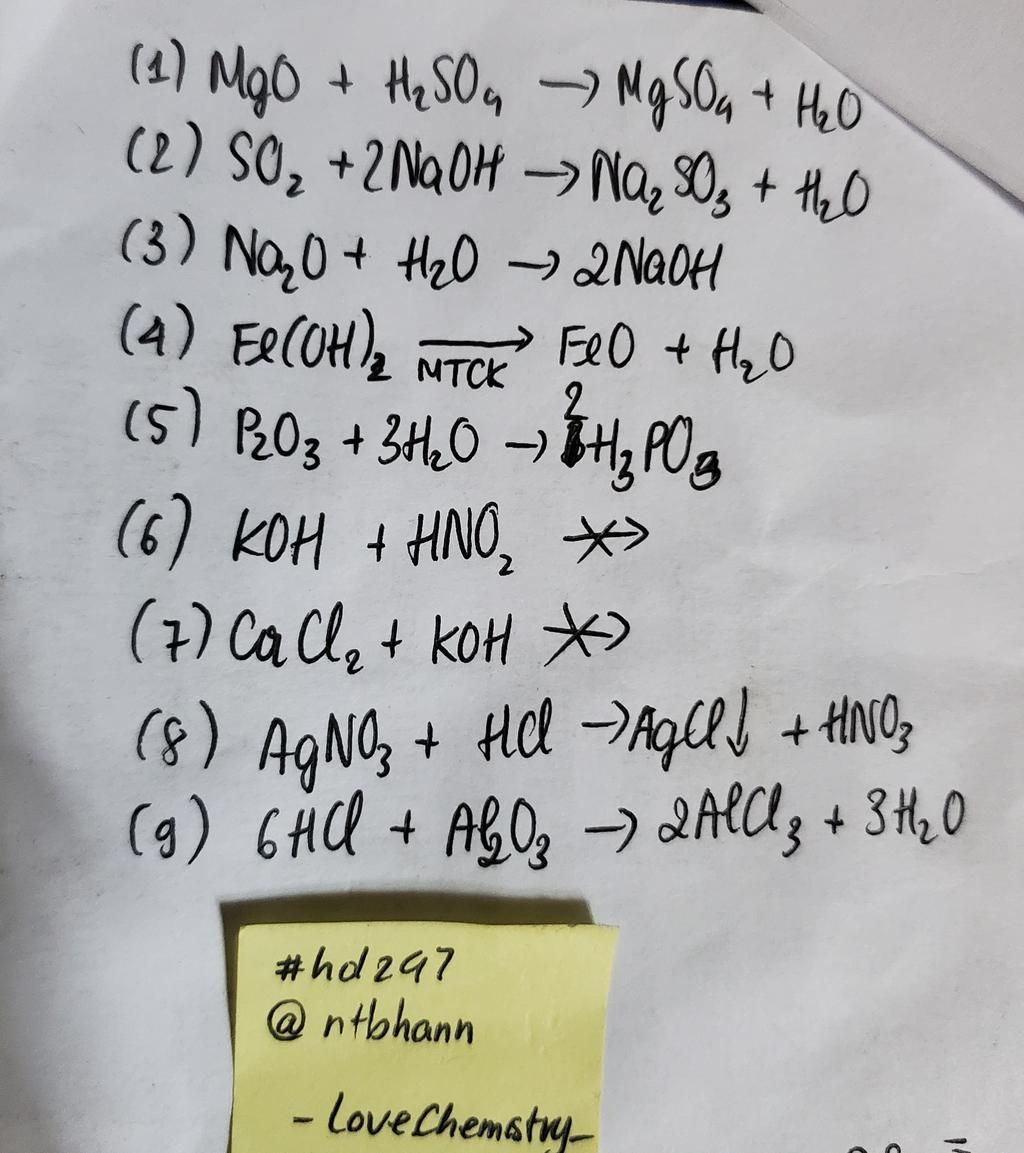 (1) MgO + H₂SO₄ → MgSO₄ + H₂O
(2) SO₂ + 2NaOH → Na₂SO₃ + H₂O
(3) Na₂O + H₂O → 2NaOH
(4) Fe(OH)₂ → MTCK FeO + H₂O
(5) P₂O₃ + 3H₂O → 2H₃PO₃
(6) KOH + HNO₂ ↛
(7) CaCl₂ + KOH ↛
(8) AgNO₃ + HCl → AgCl↓ + HNO₃
(9) 6HCl + Al₂O₃ → 2AlCl₃ + 3H₂O
#hd297
@ntbhann
- LoveChemstry -